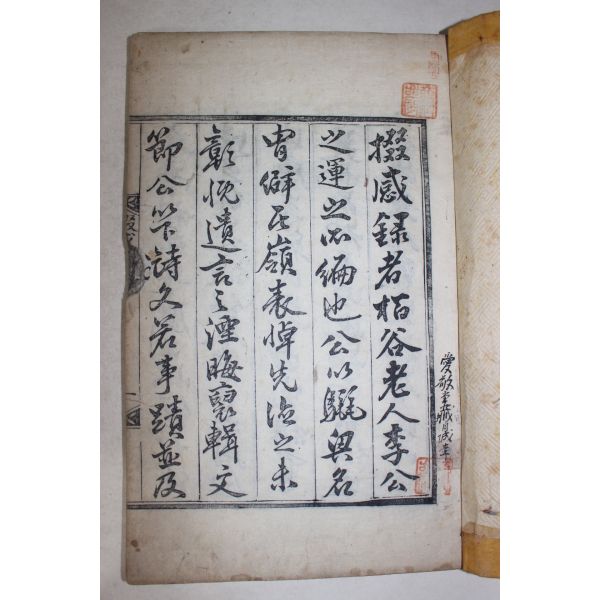 掇感錄者栢谷老人李公
之運之所編也公以驪興名
胄僻居嶺表悼先德之未
彰慨遺言之湮晦裒輯文
節公竹下詩文若事蹟並及
愛敬堂藏